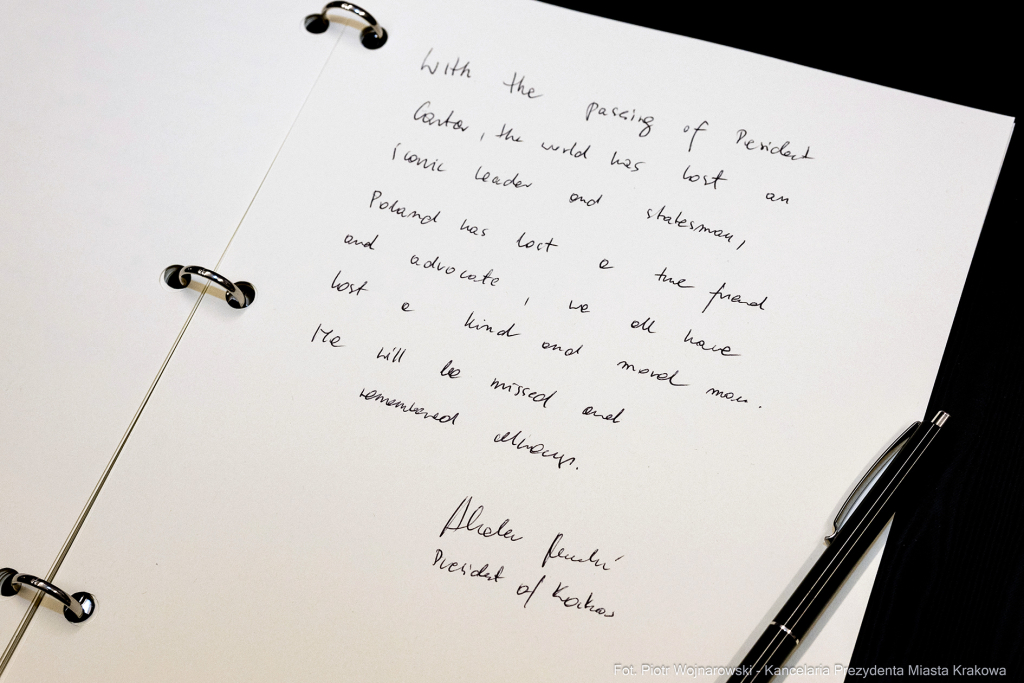 With the passing of President
Carter, the world has lost an
iconic leader and statesman,
Poland has lost a true friend
and advocate, we all have
lost a kind and moral man.
He will be missed and
remembered always.
President of Krakow
Fot. Piotr Wojnarowski - Kancelaria Prezydenta Miasta Krakowa